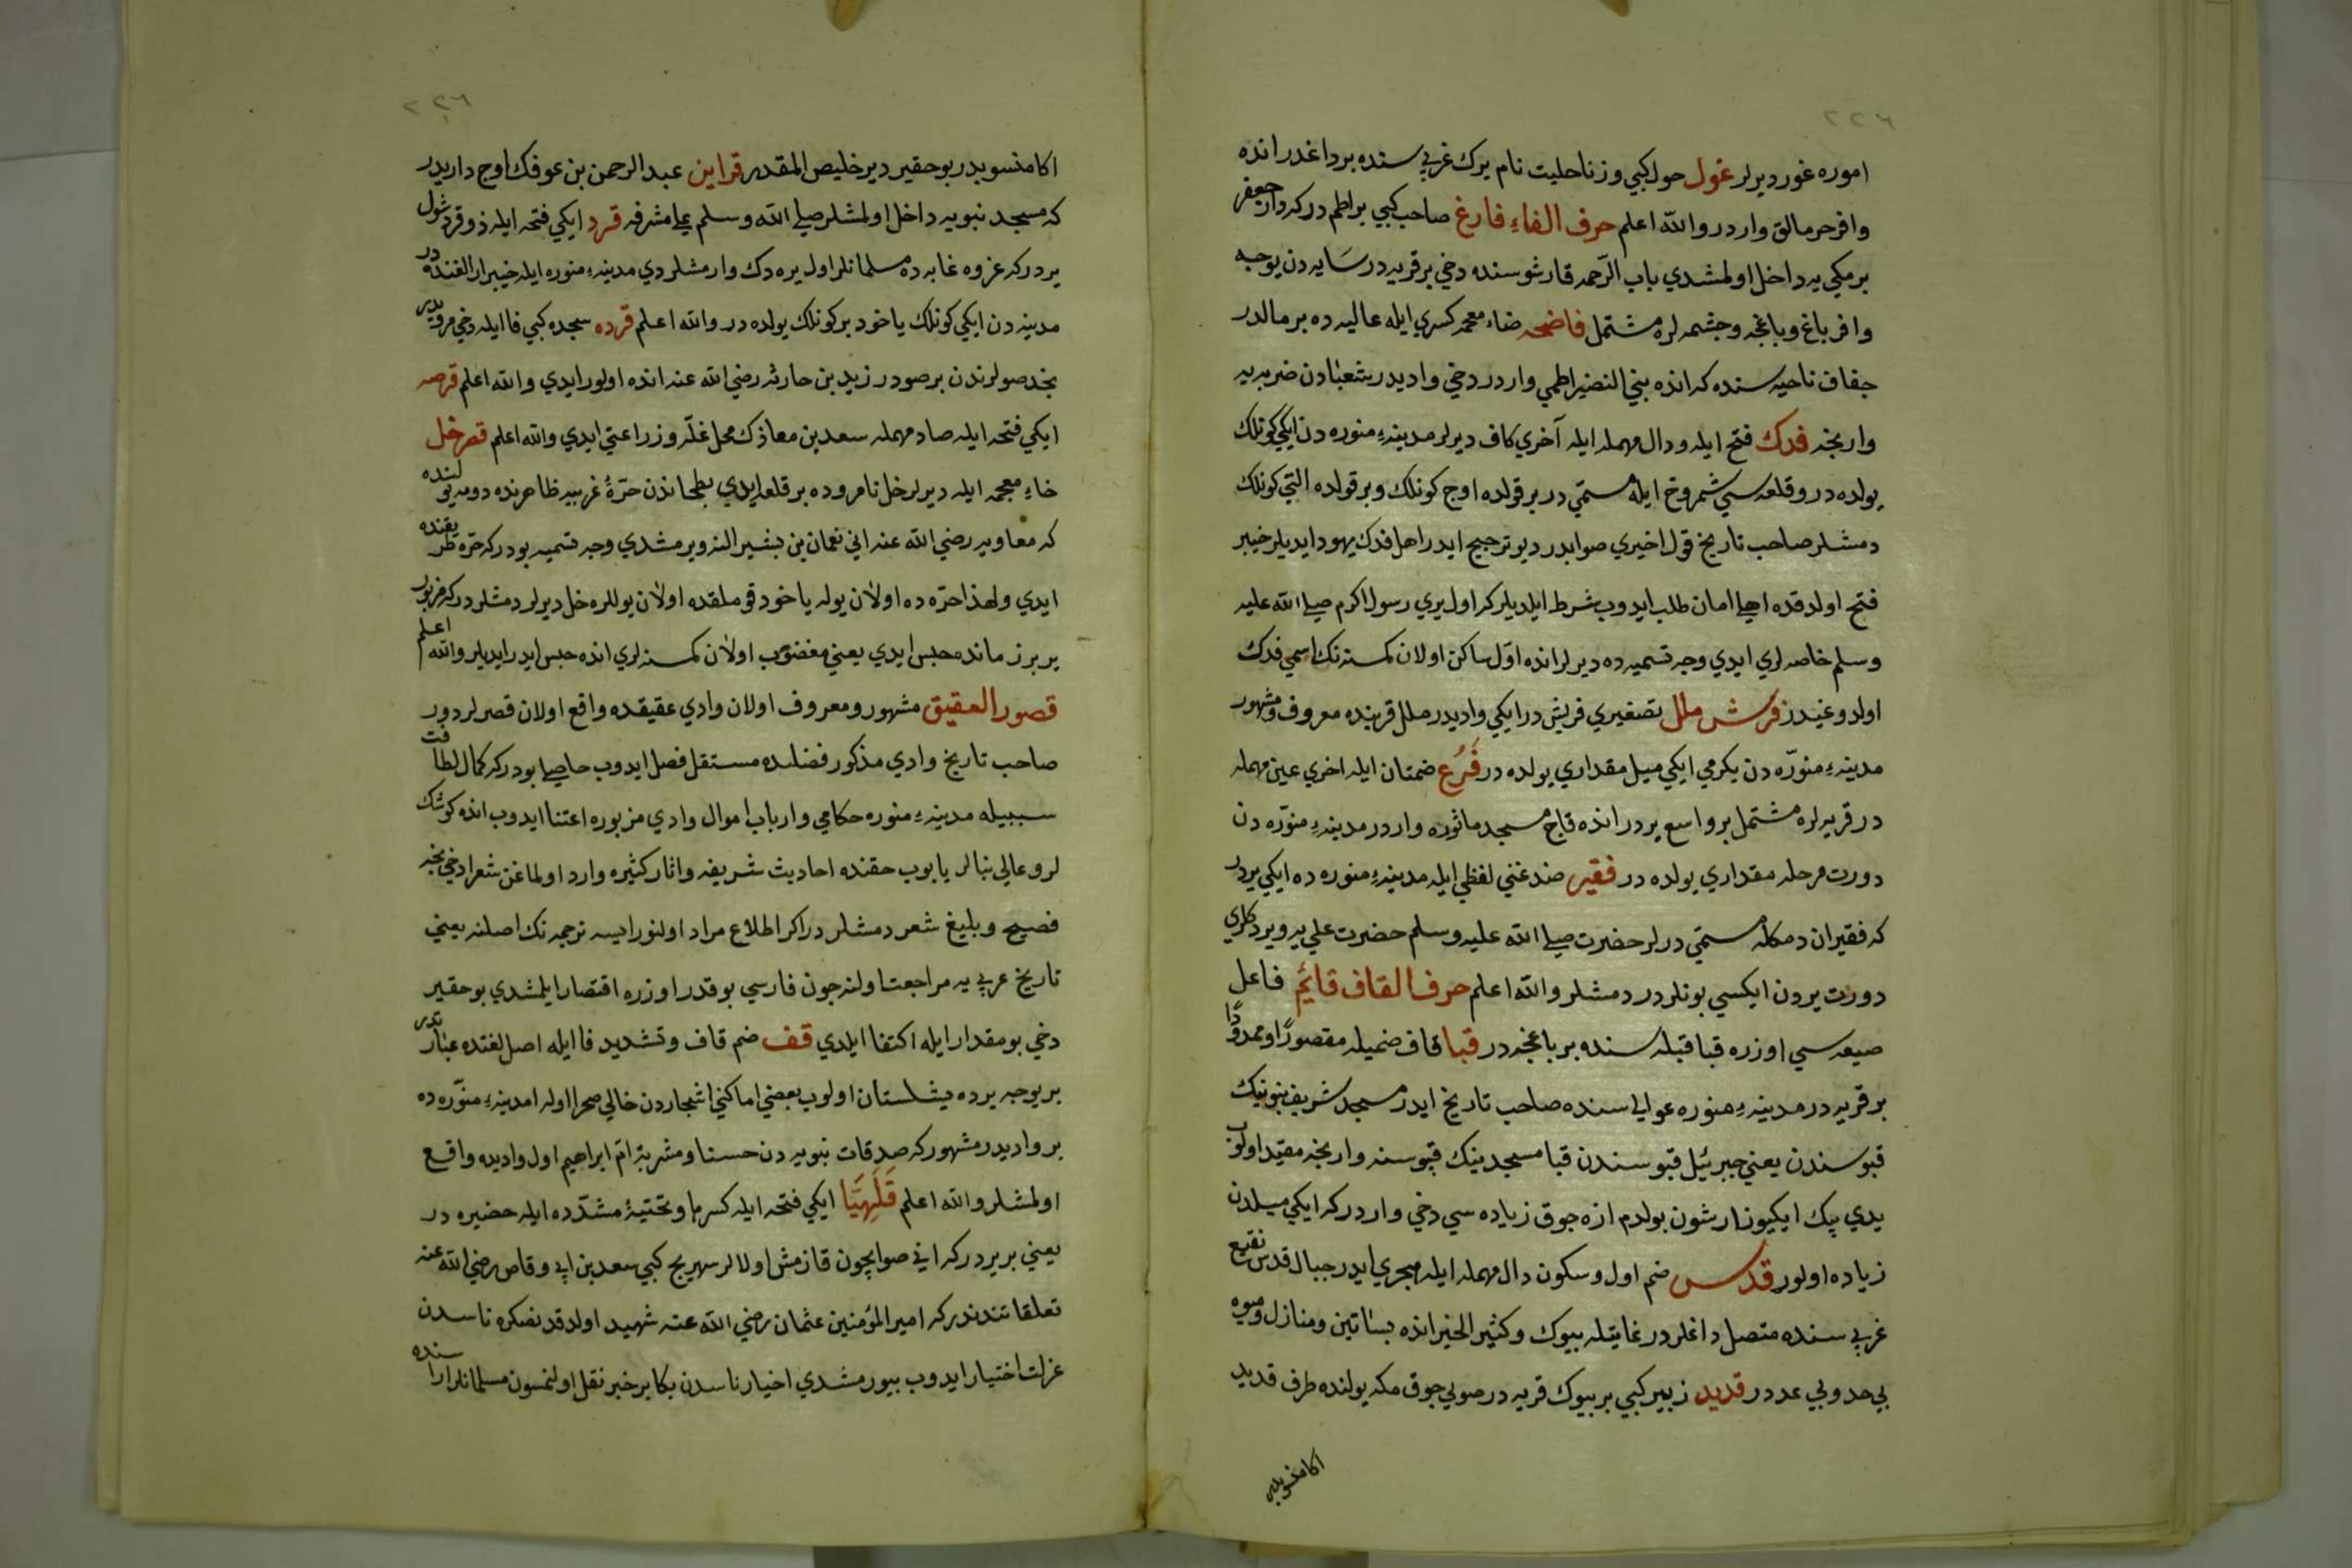 ٢٢٦
اموره غور ديرلر غول حول كبي وزنا حليت نام يرك غربي سنده بر داغدر انده
وافر حرمالق واردر والله اعلم حرف الفاء فارغ صاحب كبي براطم در كه دار جعفر
برمكي يه داخل اولمشدي باب الرّحمه قارشوسنده دخي بر قريه در سَايه دن يوجه
وافر باغ وباغچه وچشمه لره مشتمل فاضحه ضاء معجمه كسري ايله عاليه ده بر مالدر
جفاف ناحيه سنده كه انده بني النضير اطمي واردر دخي واديدر شعبادن ضريه يه
وارنجه فدك فتح ايله ودال مهمله ايله آخري كاف ديرلر مدينهء منوره دن ايكي كونلك
يولده در وقلعه سي شمروخ ايله مستمي در بر قولده اوج كونلك وبر قولده التي كونلك
دمشلر صاحب تاريخ قول اخيري صوابدر ديو ترجيح ايدر اهل فدك يهود ايديلر خيبر
فتح اولدقده اهلي امان طلب ايدوب شرط ايلديلر كه اول يري رسول اكرم صلي الله عليه
وسلم خاصه لري ايدي وجه تسميه ده ديرلر انده اوّل ساكن اولان كمسنه نك اسمي فدك
اولدوغيندر فرش ملل تصغيري فريش در ايكي واديدر ملل قربنده معروف ومشهور
مدينهء منوّره دن يكرمي ايكي ميل مقداري يولده در فُرُع ضمتان ايله اخري عين مهمله
در قريه لره مشتمل بر واسع يردر انده قاج مسجد ماثوره واردر مدينهء منوّره دن
دورت مرحله مقداري يولده در فقير ضد غني لفظي ايله مدينهء منوره ده ايكي يردر
كه فقيران دمكله مستمي درلر حضرت صلي الله عليه وسلم حضرت علي يه ويردكلري
دورت يردن ايكسي بونلردر دمشلر والله اعلم حرف القاف قائم فاعل
صيغه سي اوزره قبا قبله سنده بر باغچه در قبا قاف ضميله مقصورًا وممدودًا
بر قريه در مدينهء منوره عوالي سنده صاحب تاريخ ايدر مسجد شريف نبوينك
قپوسندن يعني جبرئيل قپوسندن قبا مسجدينك قپوسنه وارنجه مقيّد اولوب
يدي بيك ايكيوز ارشون بولدم ازه جوق زياده سي دخي واردر كه ايكي ميلدن
زياده اولور قدس ضم اول وسكون دال مهمله ايله هجري ايدر جبال قدس نقيع
غربي سنده متصل داغلردر غايتله بيوك وكثير الخير انده بساتين ومنازل وميوه
بي حد وبي عددر قديد زبير كبي بر بيوك قريه در صويي جوق مكه يولنده طرف قديد
اكا منسوبدر
٢٢٦
اكا منسوبدر بو حقير دير خليص المقدر قراين عبد الرحمن بن عوفك اوج داريدر
كه مسجد نبويه داخل اولمشلر صلي الله وسلم علي مشرفه قرد ايكي فتحه ايله ذو قرد شول
يردر كه غزوه غابه ده مسلمانلر اول يره دك وارمشلردي مدينهء منوره ايله خيبر ارالغنده در
مدينه دن ايكي كونلك ياخود بر كونلك يولده در والله اعلم قرده سجده كبي فا ايله دخي مرويدر
نجد صولرندن بر صودر زيد بن حارثه رضي الله عنه انده اولور ايدي والله اعلم قرصه
ايكي فتحه ايله صاد مهمله سعد بن معاذك محل غلّه وزراعتي ايدي والله اعلم قصر خل
خاء معجمه ايله ديرلر خل نام روده بر قلعه ايدي بطحاندن حرّهٔ غربيه ظاهرنده دومه يولنده
كه معاويه رضي الله عنه اني نعمان بن بشير النه ويرمشدي وجه تسميه بودر كه حرّه طريقنده
ايدي ولهذا حرّه ده اولان يوله ياخود قوملقده اولان يوللره خل ديرلر دمشلردر كه مزبور
ير بر زمانده حبس ايدي يعني مغضوب اولان كمسنه لري انده حبس ايدر ايديلر والله اعلم
قصور العقيق مشهور ومعروف اولان وادي عقيقده واقع اولان قصرلردور
صاحب تاريخ وادي مذكور فضلنده مستقل فصل ايدوب حاصلي بودر كه كمال لطافت
سببيله مدينهء منوره حكامي وارباب اموال وادي مزبوره اعتنا ايدوب انده كوشك
لر وعالي بنالر يابوب حقنده احاديث شريفه واثار كثيره وارد اولماغن شعرا دخي نجه
فصيح وبليغ شعر دمشلردر اكر اطلاع مراد اولنورايسه ترجمه نك اصلنه يعني
تاريخ عربي يه مراجعت اولنه جون فارسي بو قدر اوزره اقتصار ايلمشدي بو حقير
دخي بو مقدار ايله اكتفا ايلدي قف ضم قاف وتشديد فا ايله اصل لغتده عبارتدر
بر يوجه يرده ميشلستان اولوب بعضي اماكني اشجاردن خالي صحرا اوله اما مدينهء منوّره ده
بر واديدر مشهور كه صدقات نبويه دن حسنا ومشربة امّ ابراهيم اول واديده واقع
اولمشلر والله اعلم قَلَهِيَّا ايكي فتحه ايله كسر ها وتحتيهٔ مشدّده ايله حضيره در
يعني بر يردر كه اني صو ايچون قازمش اولالر سهريج كبي سعد بن ابي وقاص رضي الله عنه
تعلقاتندندر كه امير المؤمنين عثمان رضي الله عنه شهيد اولدقدنصكره ناسدن
عزلت اختيار ايدوب بيورمشدي اخيار ناسدن بكا بر خبر نقل اولنمسون مسلمانلر اراسنده